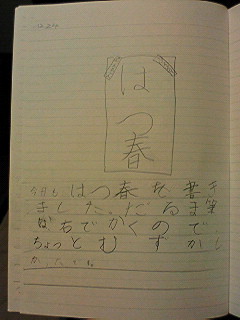 はつ春
今日も、はつ春を書き
ました。だるま筆
でかくので、
ちょっとむずかし
かった